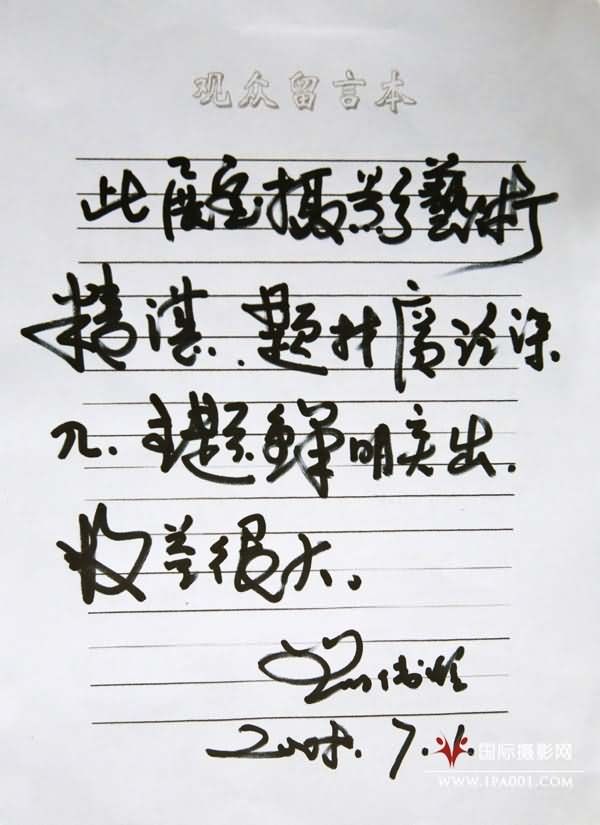 观众留言本
此展室摄影藝術
精湛.题材廣泛深
主题鲜明突出.
收益很大。
2008.7.1.
国际摄影网
WWW.IPA001.COM